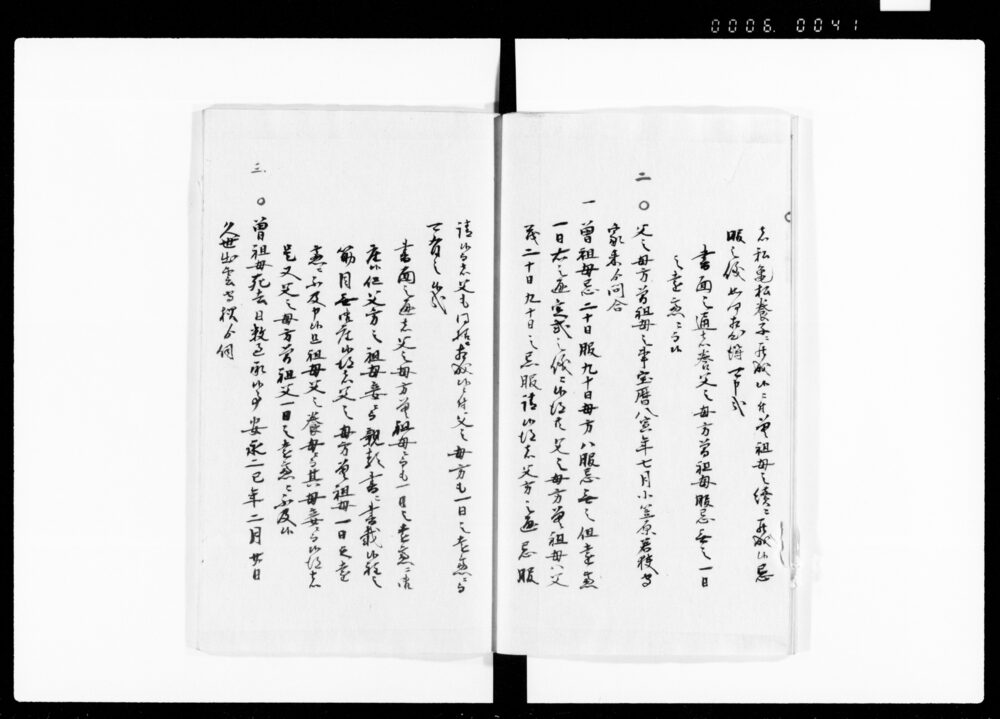 0006.0041
志私亀松養子ニ相成候ニ付曽祖母之続ニ相成候忌
服之儀
書面之通者養父之母方曽祖母服忌無之一日
之遠慮ニ而候
二 ○ 父之母方曽祖母之事宝暦八寅年七月小笠原若狭守
家来ゟ問合
一 曽祖母忌二十日服九十日母方八服忌無之但遠慮
一日右之通定式之儀ニ候得共父之母方曽祖母ハ父
二十日九十日之忌服請候得者父方之通忌服
請候而者父も同様相成候ニ付父之母方も一日之遠慮ニ而
可有之候哉
書面之通者父之母方曽祖母ニ而も一日之遠慮ニ
座候但父方之祖母妾ニ而親類書ニ書載候程之
筋目無御座候得者父之母方曽祖母一日之遠
慮ニ不及申候且祖母父之養母ニ而其母妾ニ而候得者
是又父之母方曽祖父一日之遠慮ニ不及候
三 ○ 曽祖母死去日数過承候事 安永二巳年二月廿日
久世出雲守様ゟ伺